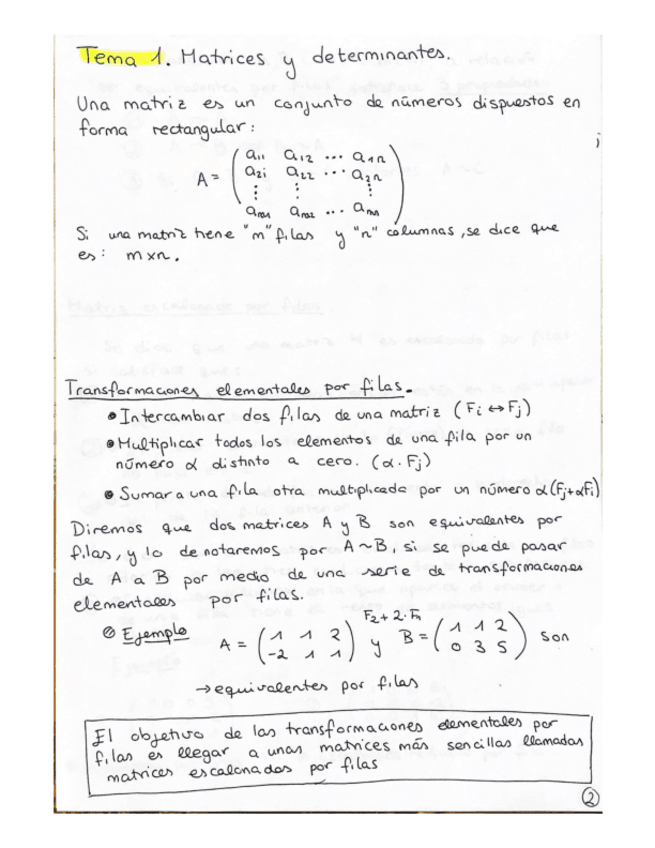 Tema 1. Matrices y determinantes.
Una matriz es un conjunto de números dispuestos en
forma rectangular:
a11 a12 ... a1n
A = a21 a22 ... a2n
⋮ ⋮ ⋮
am1 am2 ... amn
Si una matriz tiene "m" filas y "n" columnas, se dice que
es: m×n.
Transformaciones elementales por filas.
• Intercambiar dos filas de una matriz (Fi ↔ Fj)
• Multiplicar todos los elementos de una fila por un
número α distinto a cero. (α · Fj)
• Sumar a una fila otra multiplicada por un número α (Fj + αFi)
Diremos que dos matrices A y B son equivalentes por
filas, y lo denotaremos por A ~ B, si se puede pasar
de A a B por medio de una serie de transformaciones
elementales por filas.
F2 + 2·F1
Ejemplo A = (1 1 2 / -2 1 1) y B = (1 1 2 / 0 3 5) son
→ equivalentes por filas
El objetivo de las transformaciones elementales por
filas es llegar a unas matrices más sencillas llamadas
matrices escalonadas por filas
2